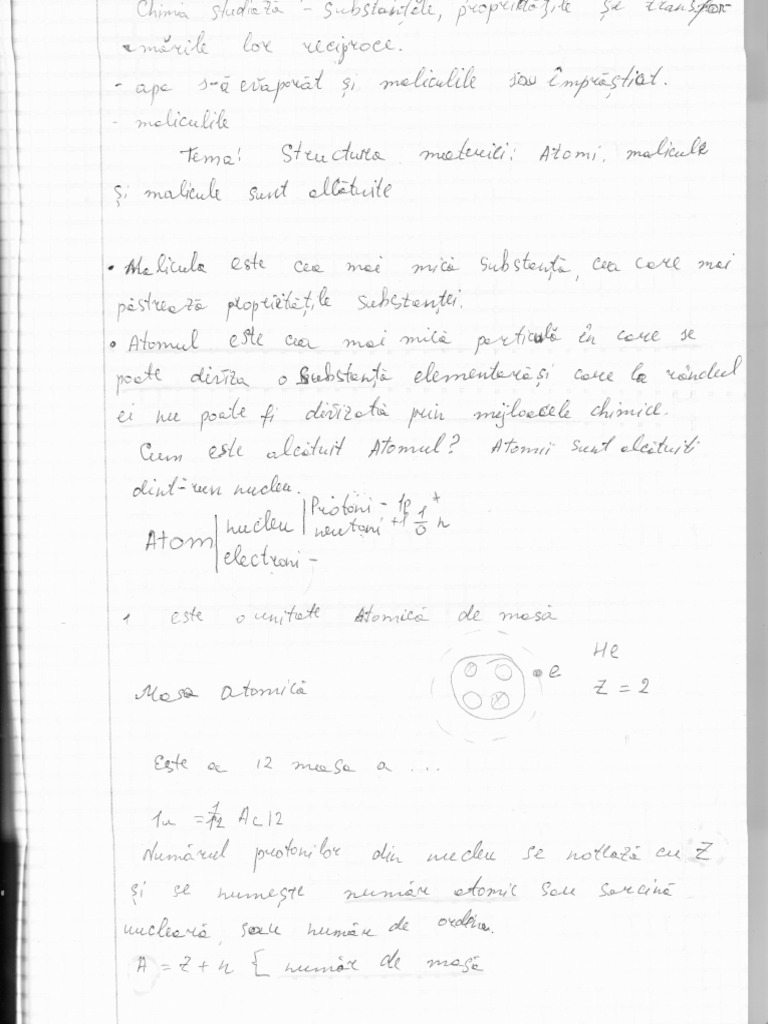 Chimia studiază - substanțele, proprietățile și transfor-
mările lor reciproce.
- apa s-a evaporăt și moliculile sau împrăștiat.
- moliculile
Tema: Structura materiei: Atomi, malicule
și malicule sunt alcătuite
• Malicula este cea mai mică substanță, cea care mai
păstrează proprietățile substanței.
• Atomul este cea mai mică particulă în care se
poate diviza o substanță elementară și care la rândul
ei nu poate fi divizată prin mijloacele chimice.
Cum este alcătuit Atomul? Atomii sunt alcătuiti
dint-run nucleu.
Atom | nucleu | Protoni - 1p+
neutroni 1/0 n
electroni -
1 este o unitate Atomică de masă
Masa atomică e He
Z = 2
Este a 12 masa a ...
1u = 1/12 Ac12
Numărul protonilor din nucleu se notează cu Z
și se numește număr atomic sau sarcină
nucleară, sau număr de ordine.
A = Z + n { număr de masă